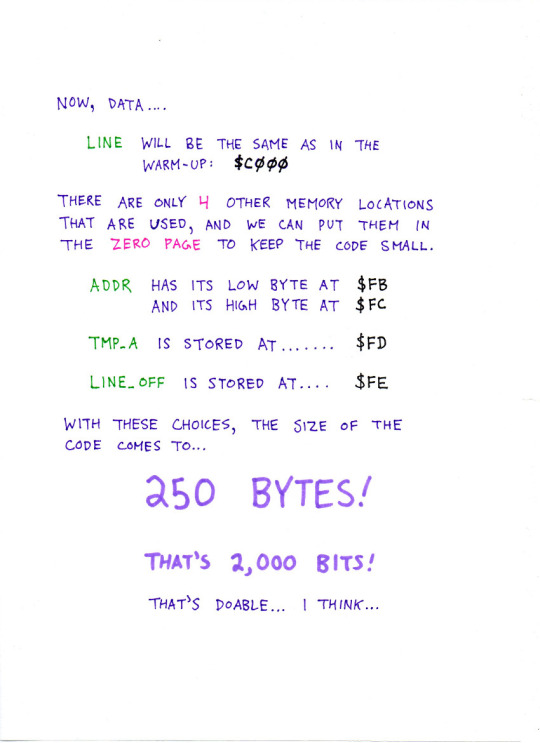 NOW, DATA....
LINE WILL BE THE SAME AS IN THE
WARM-UP: $CØØØ
THERE ARE ONLY 4 OTHER MEMORY LOCATIONS
THAT ARE USED, AND WE CAN PUT THEM IN
THE ZERO PAGE TO KEEP THE CODE SMALL.
ADDR HAS ITS LOW BYTE AT $FB
AND ITS HIGH BYTE AT $FC
TMP_A IS STORED AT....... $FD
LINE_OFF IS STORED AT.... $FE
WITH THESE CHOICES, THE SIZE OF THE
CODE COMES TO...
250 BYTES!
THAT'S 2,000 BITS!
THAT'S DOABLE... I THINK...